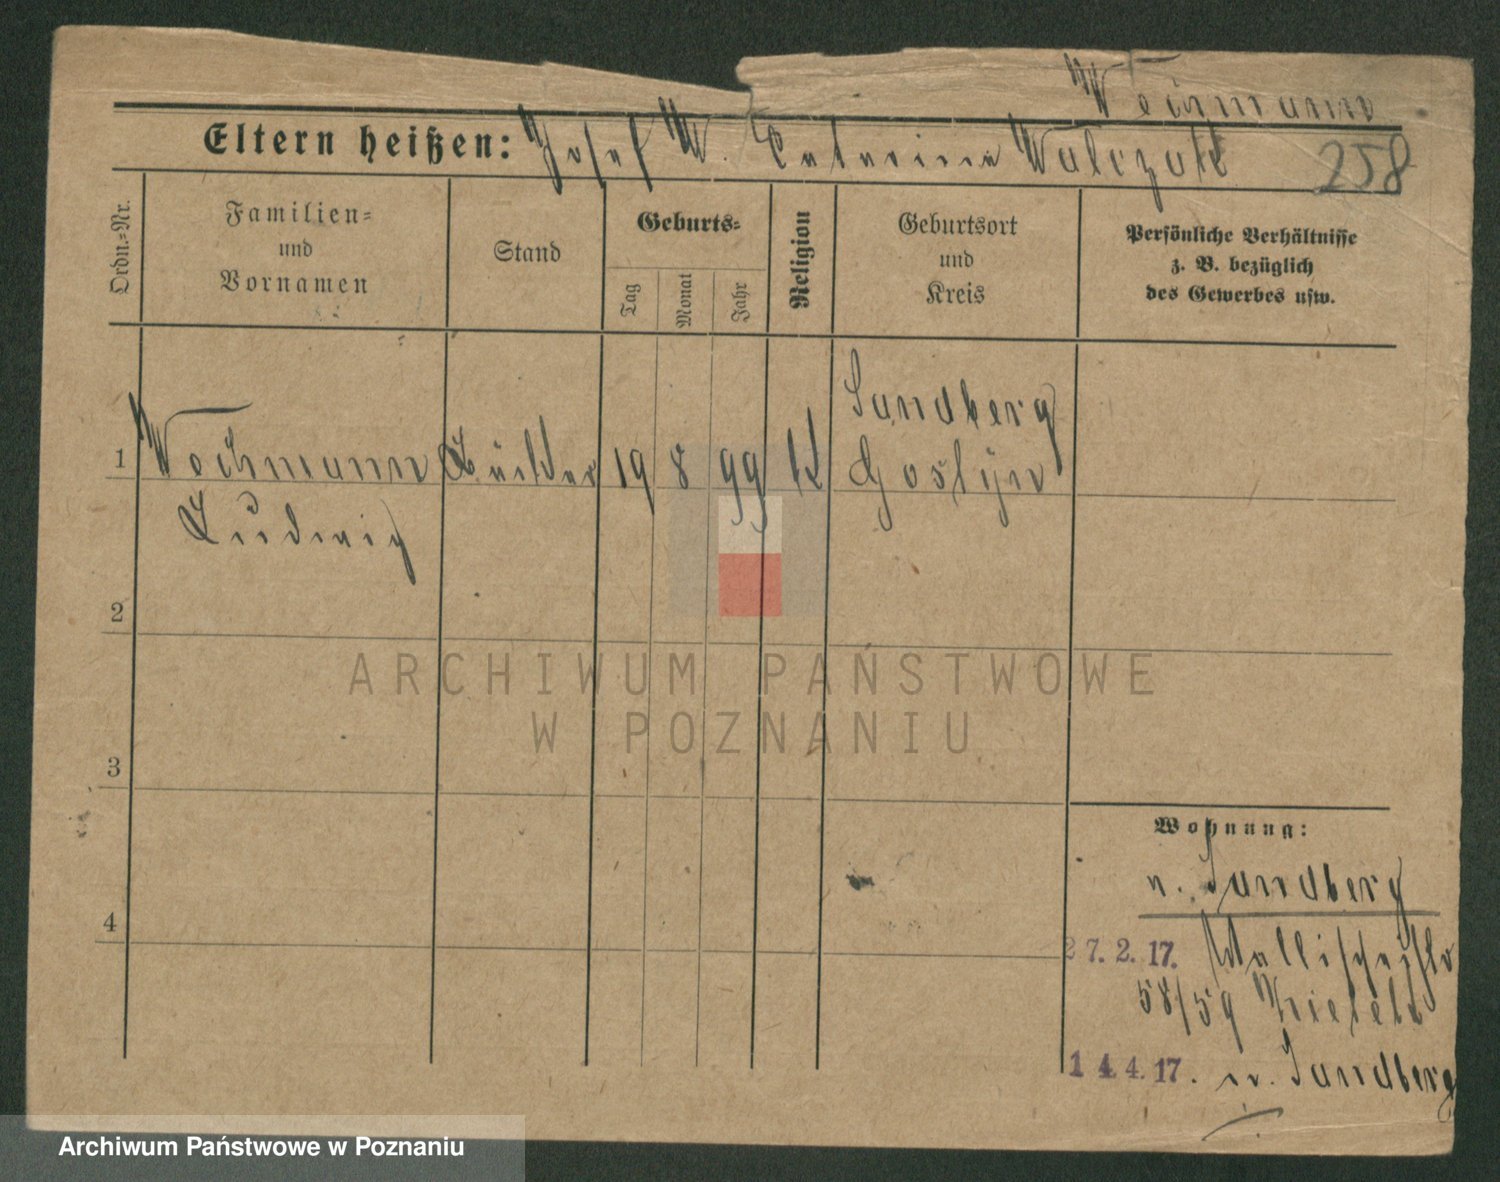 Weihmann
Eltern heißen: Josef W. Catarina Walczak
258
Ordn.-Nr.
Familien-
und
Vornamen
Stand
Geburts-
Tag
Monat
Jahr
Religion
Geburtsort
und
Kreis
Persönliche Verhältnisse
z. B. bezüglich
des Gewerbes usw.
Sandberg
1 Weihmann 19 8 99 K Gostyn
Ludwig
2
3
4
Wohnung:
n. Sandberg
27. 2. 17. Wallischeistr
58/59
14 4. 17. n. Sandberg
ARCHIWUM PAŃSTWOWE
W POZNANIU
Archiwum Państwowe w Poznaniu